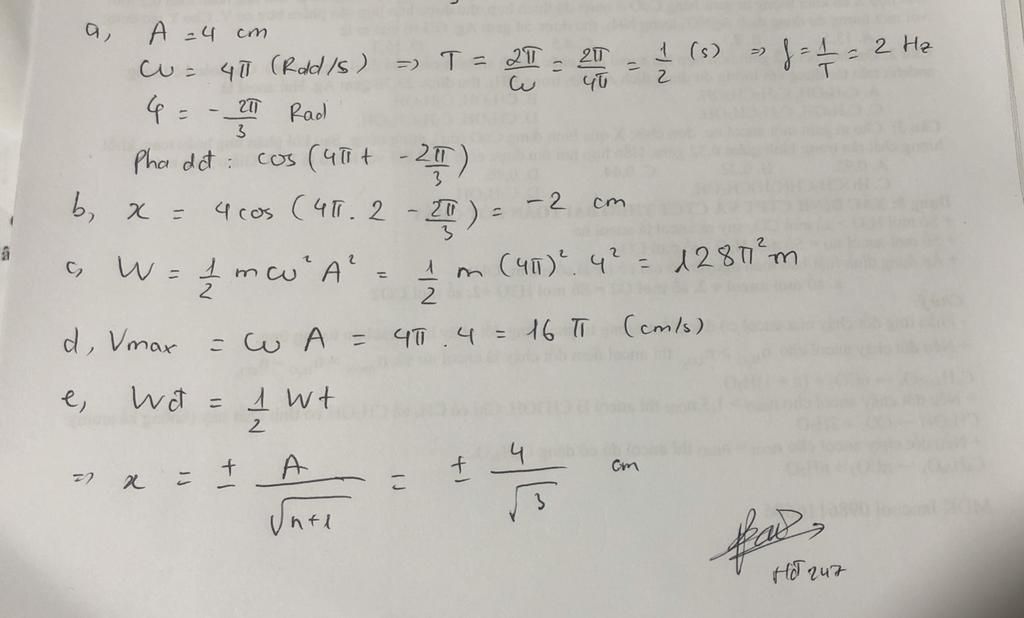 a, A = 4 cm
ω = 4π (Rad/s) => T = 2π/ω = 2π/4π = 1/2 (s) => f = 1/T = 2 Hz
φ = - 2π/3 Rad
Pha dđ : cos (4πt - 2π/3)
b, x = 4cos (4π . 2 - 2π/3) = -2 cm
c, W = 1/2 mω²A² = 1/2 m (4π)² . 4² = 128π²m
d, Vmax = ωA = 4π . 4 = 16π (cm/s)
e, Wđ = 1/2 Wt
=> x = ± A/√(n+1) = ± 4/√3 cm
HĐ 247